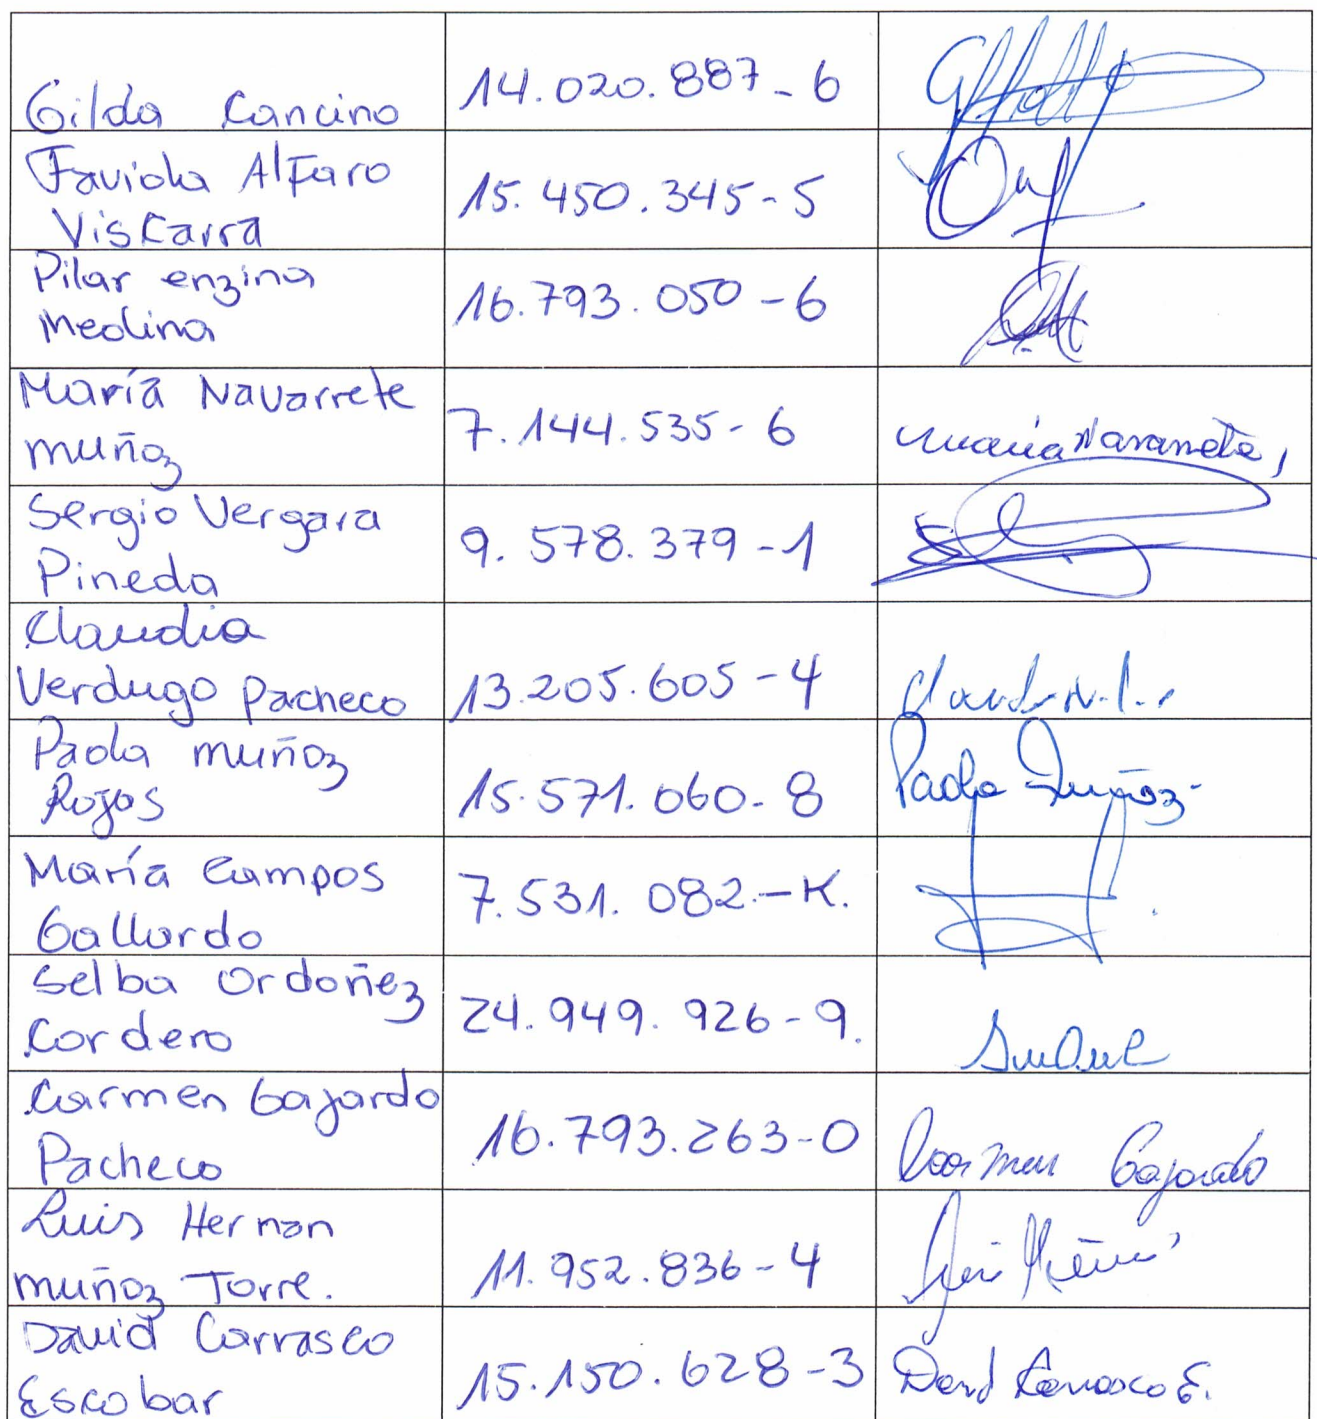 Gilda Cancino 14.020.887-6
Faviola Alfaro
Viscarra 15.450.345-5
Pilar enzina
Medina 16.793.050-6
María Navarrete
muñoz 7.144.535-6 Maria Navarrete
Sergio Vergara
Pineda 9.578.379-1
Claudia
Verdugo Pacheco 13.205.605-4
Paola muñoz
Rojas 15.571.060-8 Paola Muñoz
María Campos
Gallardo 7.531.082-K.
Selba Ordoñez
Cordero 24.949.926-9.
Carmen Gajardo
Pacheco 16.793.263-0 Carmen Gajardo
Luis Hernan
muñoz Torre. 11.952.836-4
David Carrasco
Escobar 15.150.628-3 David Carrasco E.